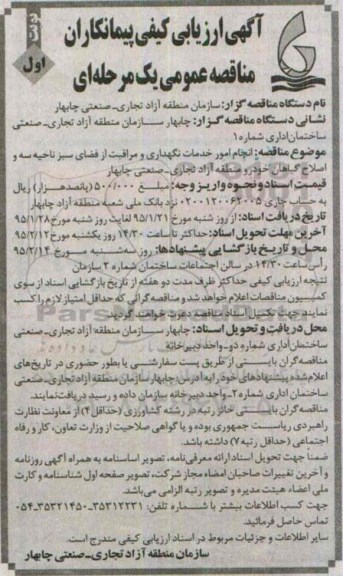 آگهی ارزیابی کیفی پیمانکاران
مناقصه عمومی یک مرحله‌ای
نوبت
اول
نام دستگاه مناقصه گزار: سازمان منطقه آزاد تجاری-صنعتی چابهار
نشانی دستگاه مناقصه گزار: چابهار سازمان منطقه آزاد تجاری-صنعتی
ساختمان اداری شماره ۱
موضوع مناقصه: انجام امور خدمات نگهداری و مراقبت از فضای سبز ناحیه سه و
اصلاح گیاهان خودرو منطقه آزاد تجاری-صنعتی چابهار
قیمت اسناد و نحوه واریز وجه: مبلغ ۵۰۰/۰۰۰ (پانصدهزار) ریال
به حساب جاری ۰۲۰۰۱۲۰۰۶۲۰۰۵ نزد بانک ملی شعبه منطقه آزاد چابهار
تاریخ دریافت اسناد: از روز شنبه مورخ ۹۵/۱/۲۱ لغایت روز شنبه مورخ ۹۵/۱/۲۸
آخرین مهلت تحویل اسناد: حداکثر تا ساعت ۱۴/۳۰ روز یکشنبه مورخ ۹۵/۲/۱۲
محل و تاریخ بازگشایی پیشنهادها: روز سه‌شنبه مورخ ۹۵/۲/۱۴
راس ساعت ۱۴/۳۰ در سالن اجتماعات ساختمان شماره ۲ سازمان
نتیجه ارزیابی کیفی حداکثر ظرف مدت دو هفته از تاریخ بازگشایی اسناد از سوی
کمیسیون مناقصات اعلام خواهد شد و مناقصه گرانی که حداقل امتیاز لازم را کسب
نمایند جهت تکمیل اسناد مناقصه دعوت خواهند گردید.
محل دریافت و تحویل اسناد: چابهار سازمان منطقه آزاد تجاری-صنعتی
ساختمان اداری شماره دو-واحد دبیرخانه
مناقصه گران بایستی از طریق پست سفارشی یا بطور حضوری در تاریخ‌های
اعلام شده پیشنهادهای خود را به آدرس: چابهار سازمان منطقه آزاد تجاری-صنعتی
ساختمان اداری شماره ۲-واحد دبیرخانه سازمان داده و رسید دریافت نمایند.
مناقصه گران بایستی حائز رتبه در رشته کشاورزی (حداقل ۴) از معاونت نظارت
راهبردی ریاست جمهوری بوده و یا گواهی صلاحیت از وزارت تعاون، کار و رفاه
اجتماعی (حداقل رتبه ۷) داشته باشد.
ضمنا جهت تحویل اسناد ارائه معرفی‌نامه، تصویر اساسنامه به همراه آگهی روزنامه
و آخرین تغییرات صاحبان امضاء مجاز شرکت، تصویر صفحه اول شناسنامه و کارت
ملی اعضاء هیئت مدیره و تصویر رتبه الزامی می‌باشد.
جهت کسب اطلاعات بیشتر با شماره تلفن: ۳۵۳۱۲۲۳۱-۳۵۳۲۱۴۵۰-۰۵۴
تماس حاصل فرمائید.
سایر اطلاعات و جزئیات مربوط در اسناد ارزیابی کیفی مندرج است.
سازمان منطقه آزاد تجاری-صنعتی چابهار